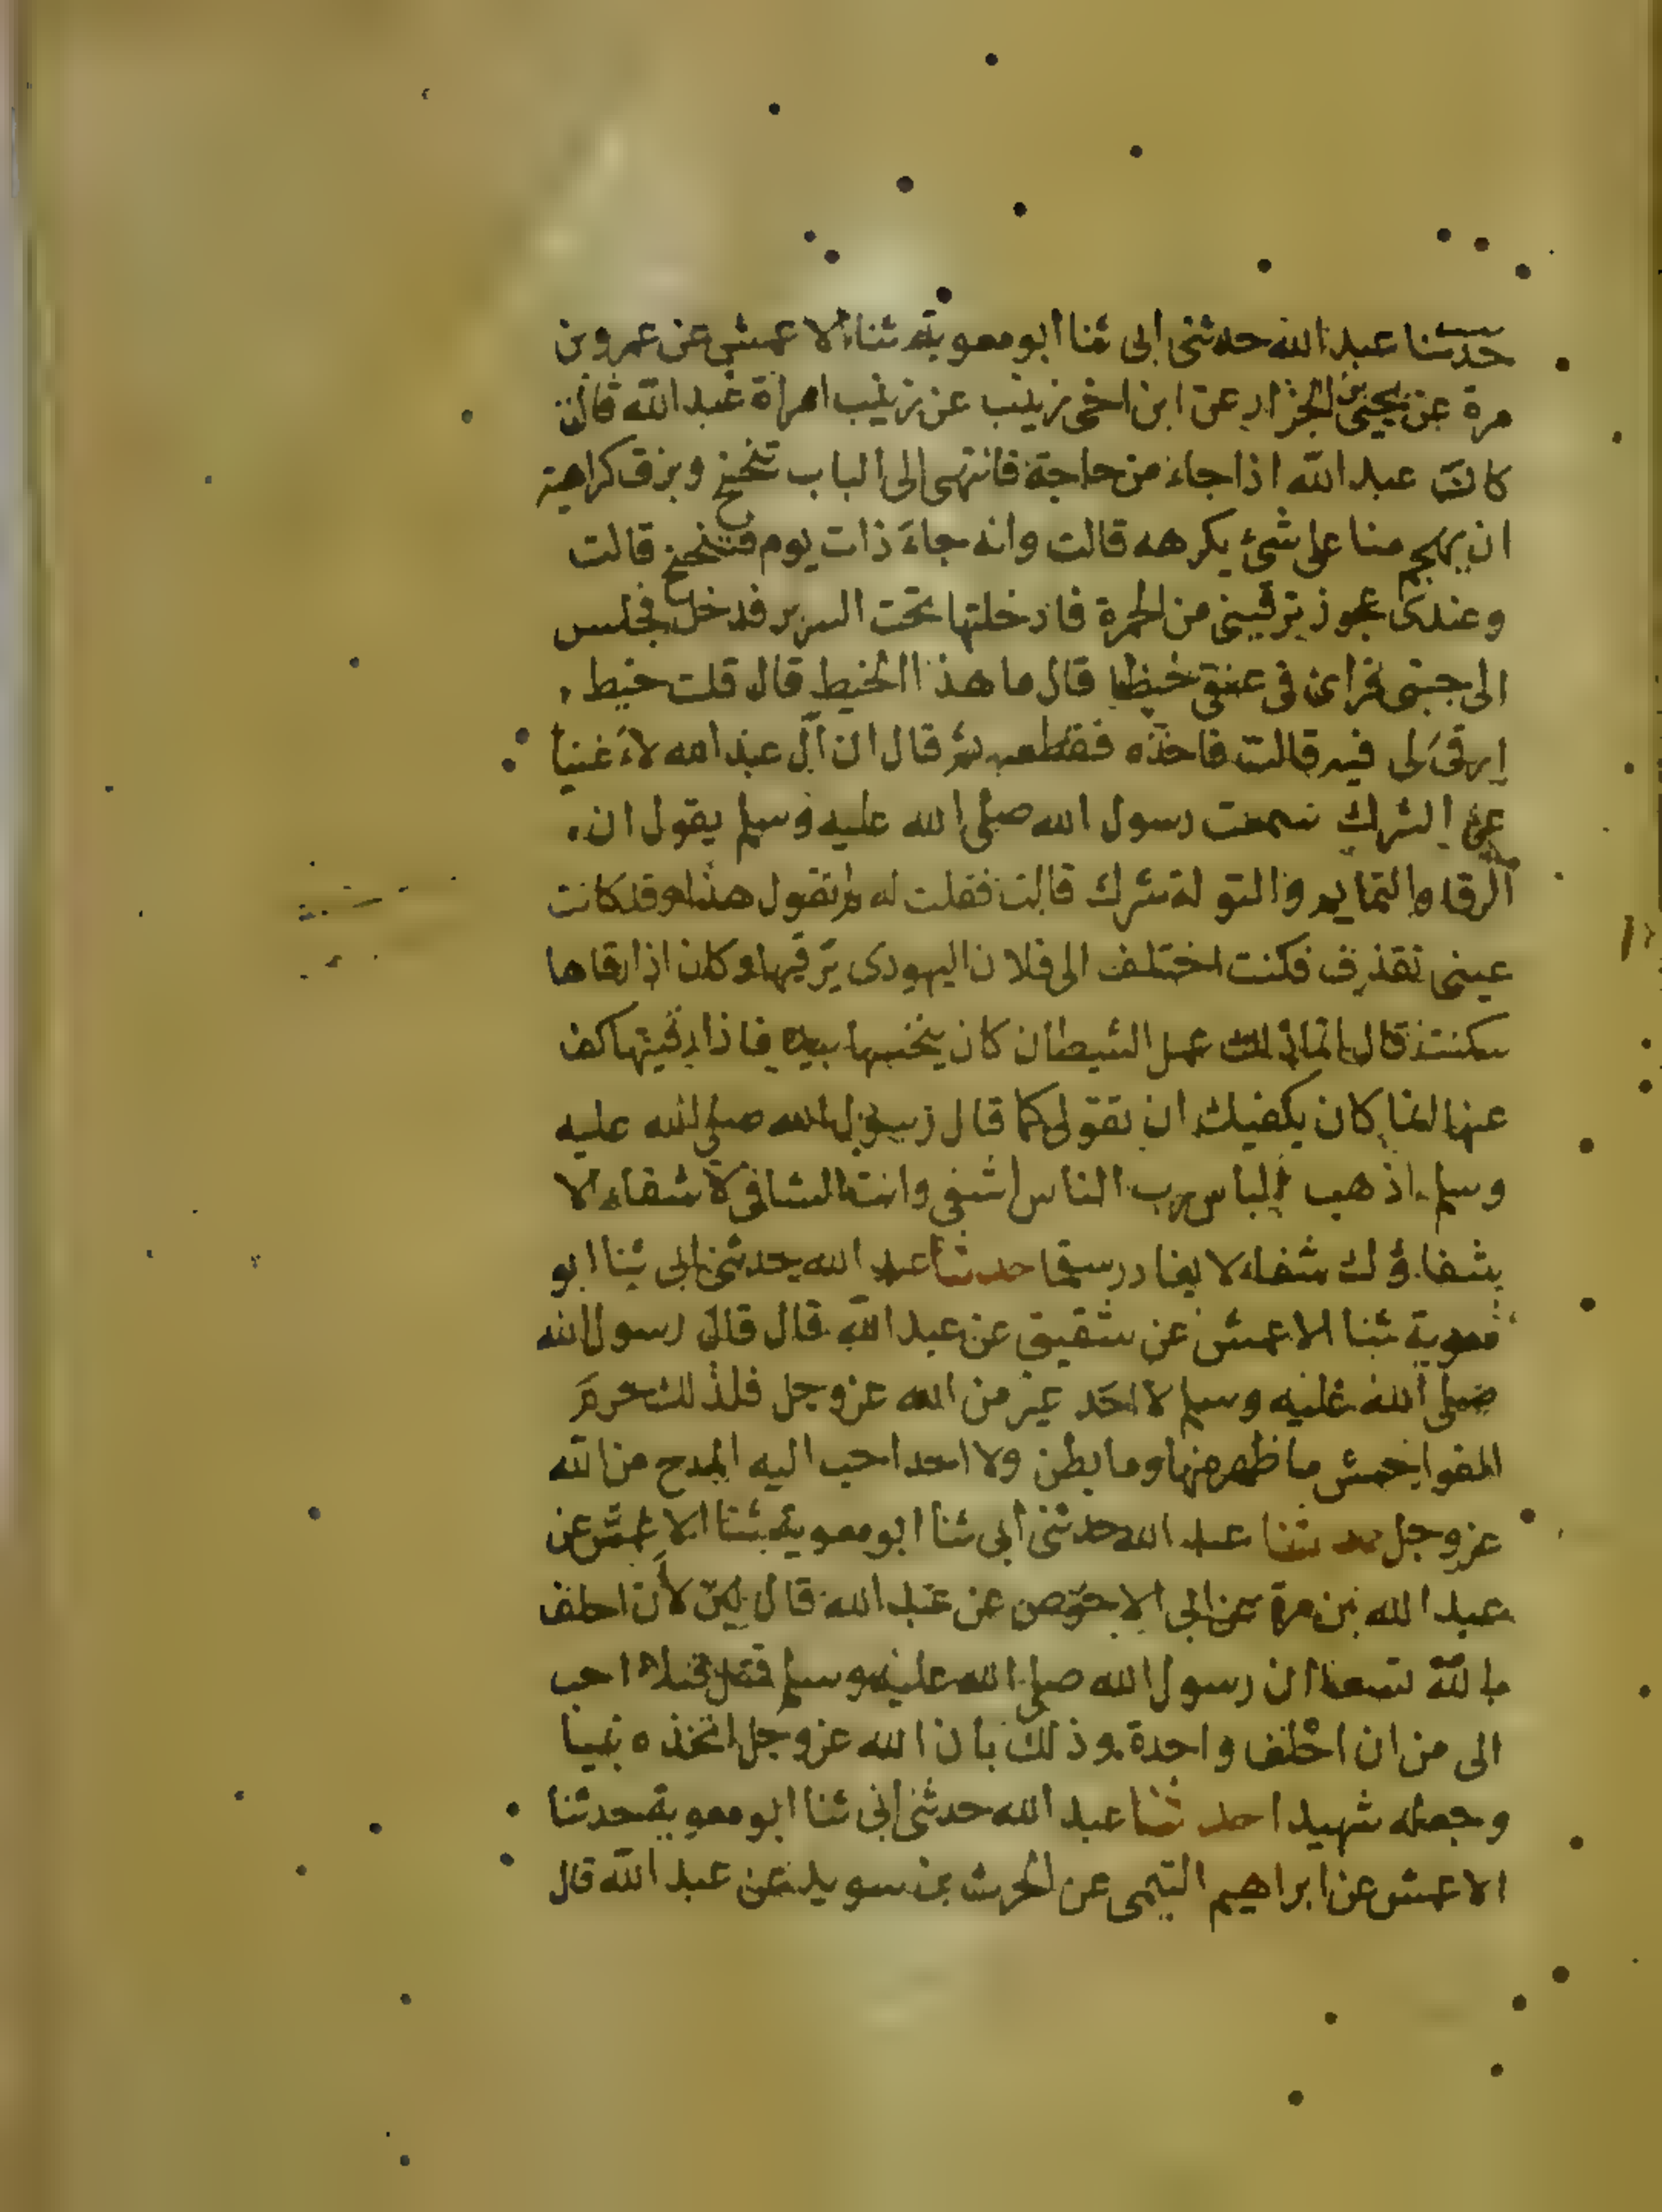 حدثنا عبد الله حدثنى ابى ثنا ابو معوية ثنا الاعمش عن عمرو بن
مرة عن يحيى بن الجزار عن ابن اخى زينب عن زينب امراة عبد الله قالت
كانت عبد الله اذا جاء من حاجة فانتهى الى الباب تنحنح وبزق كراهية
ان يهجم منا على شئ يكرهه قالت وانه جاء ذات يوم فتنحنح قالت
وعندى عجوز ترقينى من الحمرة فادخلتها تحت السرير فدخل فجلس
الى جنبى فراى فى عنقى خيطا قال ما هذا الخيط قال قلت خيط
ارقى لى فيه قالت فاخذه فقطعه ثم قال ان آل عبد الله لاغنيا
عن الشرك سمعت رسول الله صلى الله عليه وسلم يقول ان
الرقا والتمايم والتولة شرك قالت فقلت له لم تقول هذا وقد كانت
عينى تقذف فكنت اختلف الى فلان اليهودى يرقيها وكان اذا رقاها
سكنت قال انما ذلك عمل الشيطان كان ينخسها بيده فاذا رقيتها كف
عنها انما كان يكفيك ان تقولى كما قال رسول الله صلى الله عليه
وسلم اذهب الباس رب الناس اشفى وانت الشافى لا شفاء الا
شفاؤك شفاء لا يغادر سقما حدثنا عبد الله حدثنى ابى ثنا ابو
معوية ثنا الاعمش عن شقيق عن عبد الله قال قال رسول الله
صلى الله عليه وسلم لا احد غير من الله عز وجل فلذلك حرم
الفواحش ما ظهر منها وما بطن ولا احد احب اليه المدح من الله
عز وجل حدثنا عبد الله حدثنى ابى ثنا ابو معوية ثنا الاعمش عن
عبد الله بن مرة عن ابى الاحوص عن عبد الله قال لان احلف
بالله تسعا ان رسول الله صلى الله عليه وسلم قتل قتلا احب
الى من ان احلف واحدة وذلك بان الله عز وجل اتخذه نبيا
وجعله شهيدا حدثنا عبد الله حدثنى ابى ثنا ابو معوية حدثنا
الاعمش عن ابراهيم التيمى عن الحرث بن سويد عن عبد الله قال